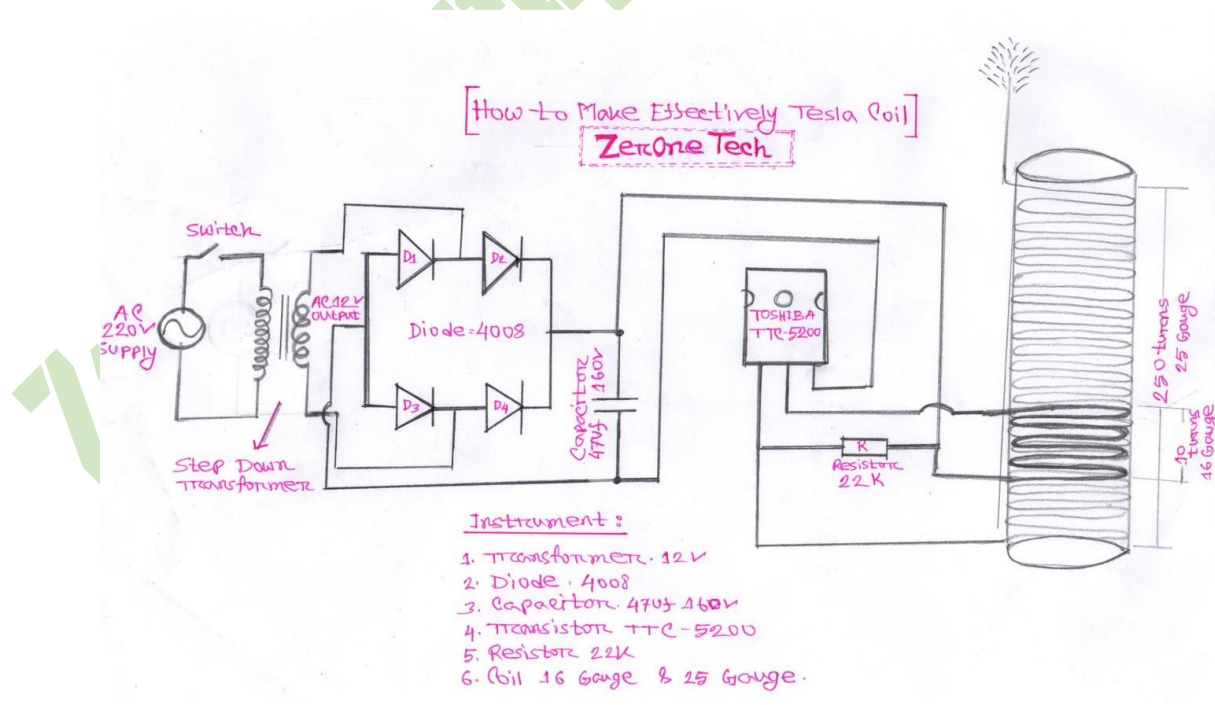 [How to Make Effectively Tesla Coil]
ZerOne Tech
Switch
AC
220V
Supply
AC 12V
Output
Step Down
Transformer
D1
D2
Diode = 4008
D3
D4
Capacitor
47uf 160v
TOSHIBA
TTC-5200
R
Resistor
22K
250 turns
25 Gauge
10
turns
16 Gauge
Instrument :
1. Transformer. 12V
2. Diode. 4008
3. Capacitor. 47uf 160v
4. Transistor TTC-5200
5. Resistor 22K
6. Coil 16 Gauge & 25 Gauge.